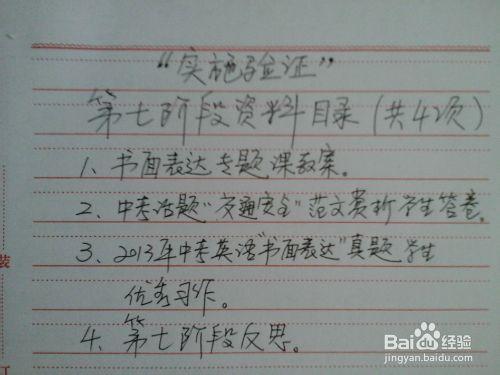 “实施验证”
第七阶段资料目录(共4项)
1、书面表达专题课教案。
2、中考话题“交通安全”范文赏析学生答卷。
3、2013年中考英语“书面表达”真题 学生
优秀习作。
4、第七阶段反思。
装
Baidu经验
jingyan.baidu.com